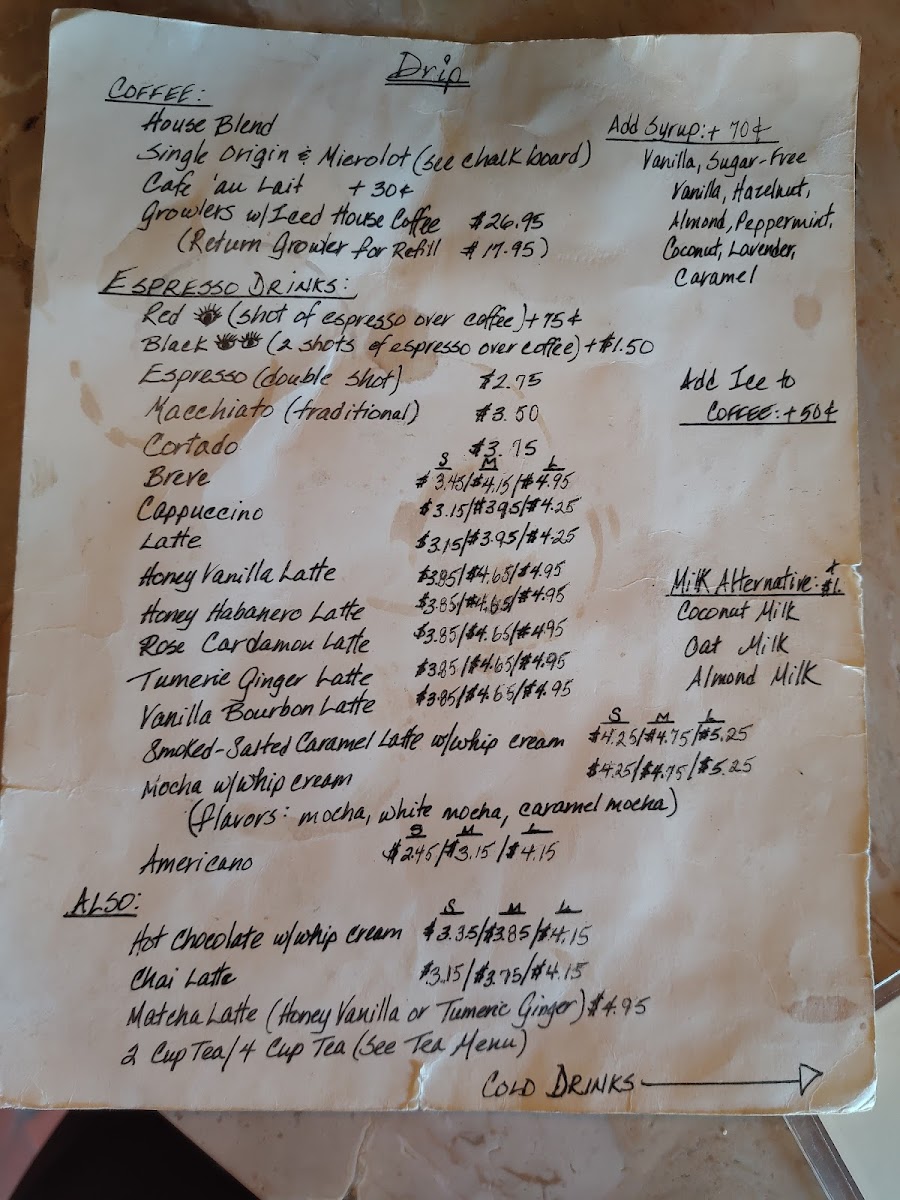 Drip
COFFEE:
House Blend
Single Origin & Microlot (see chalk board)
Cafe 'au Lait + 30¢
Growlers w/Iced House Coffee $26.95
(Return Growler for Refill $17.95)
Add Syrup: + 70¢
Vanilla, Sugar-Free
Vanilla, Hazelnut,
Almond, Peppermint,
Coconut, Lavender,
Caramel
ESPRESSO DRINKS:
Red (shot of espresso over coffee) + 75¢
Black (2 shots of espresso over coffee) + $1.50
Espresso (double shot) $2.75
Macchiato (traditional) $3.50
Cortado $3.75
S M L
Breve $3.45/$4.15/$4.95
Cappuccino $3.15/$3.95/$4.25
Latte $3.15/$3.95/$4.25
Honey Vanilla Latte $3.85/$4.65/$4.95
Honey Habanero Latte $3.85/$4.65/$4.95
Rose Cardamou Latte $3.85/$4.65/$4.95
Tumeric Ginger Latte $3.85/$4.65/$4.95
Vanilla Bourbon Latte $3.85/$4.65/$4.95
S M L
Smoked-Salted Caramel Latte w/whip cream $4.25/$4.75/$5.25
Mocha w/whip cream $4.25/$4.75/$5.25
(flavors: mocha, white mocha, caramel mocha)
S M L
Americano $2.45/$3.15/$4.15
Add Ice to
COFFEE: + 50¢
Milk Alternative: + $1.
Coconut Milk
Oat Milk
Almond Milk
ALSO:
S M L
Hot Chocolate w/whip cream $3.35/$3.85/$4.15
Chai Latte $3.15/$3.75/$4.15
Matcha Latte (Honey Vanilla or Tumeric Ginger) $4.95
2 Cup Tea/4 Cup Tea (See Tea Menu)
COLD DRINKS